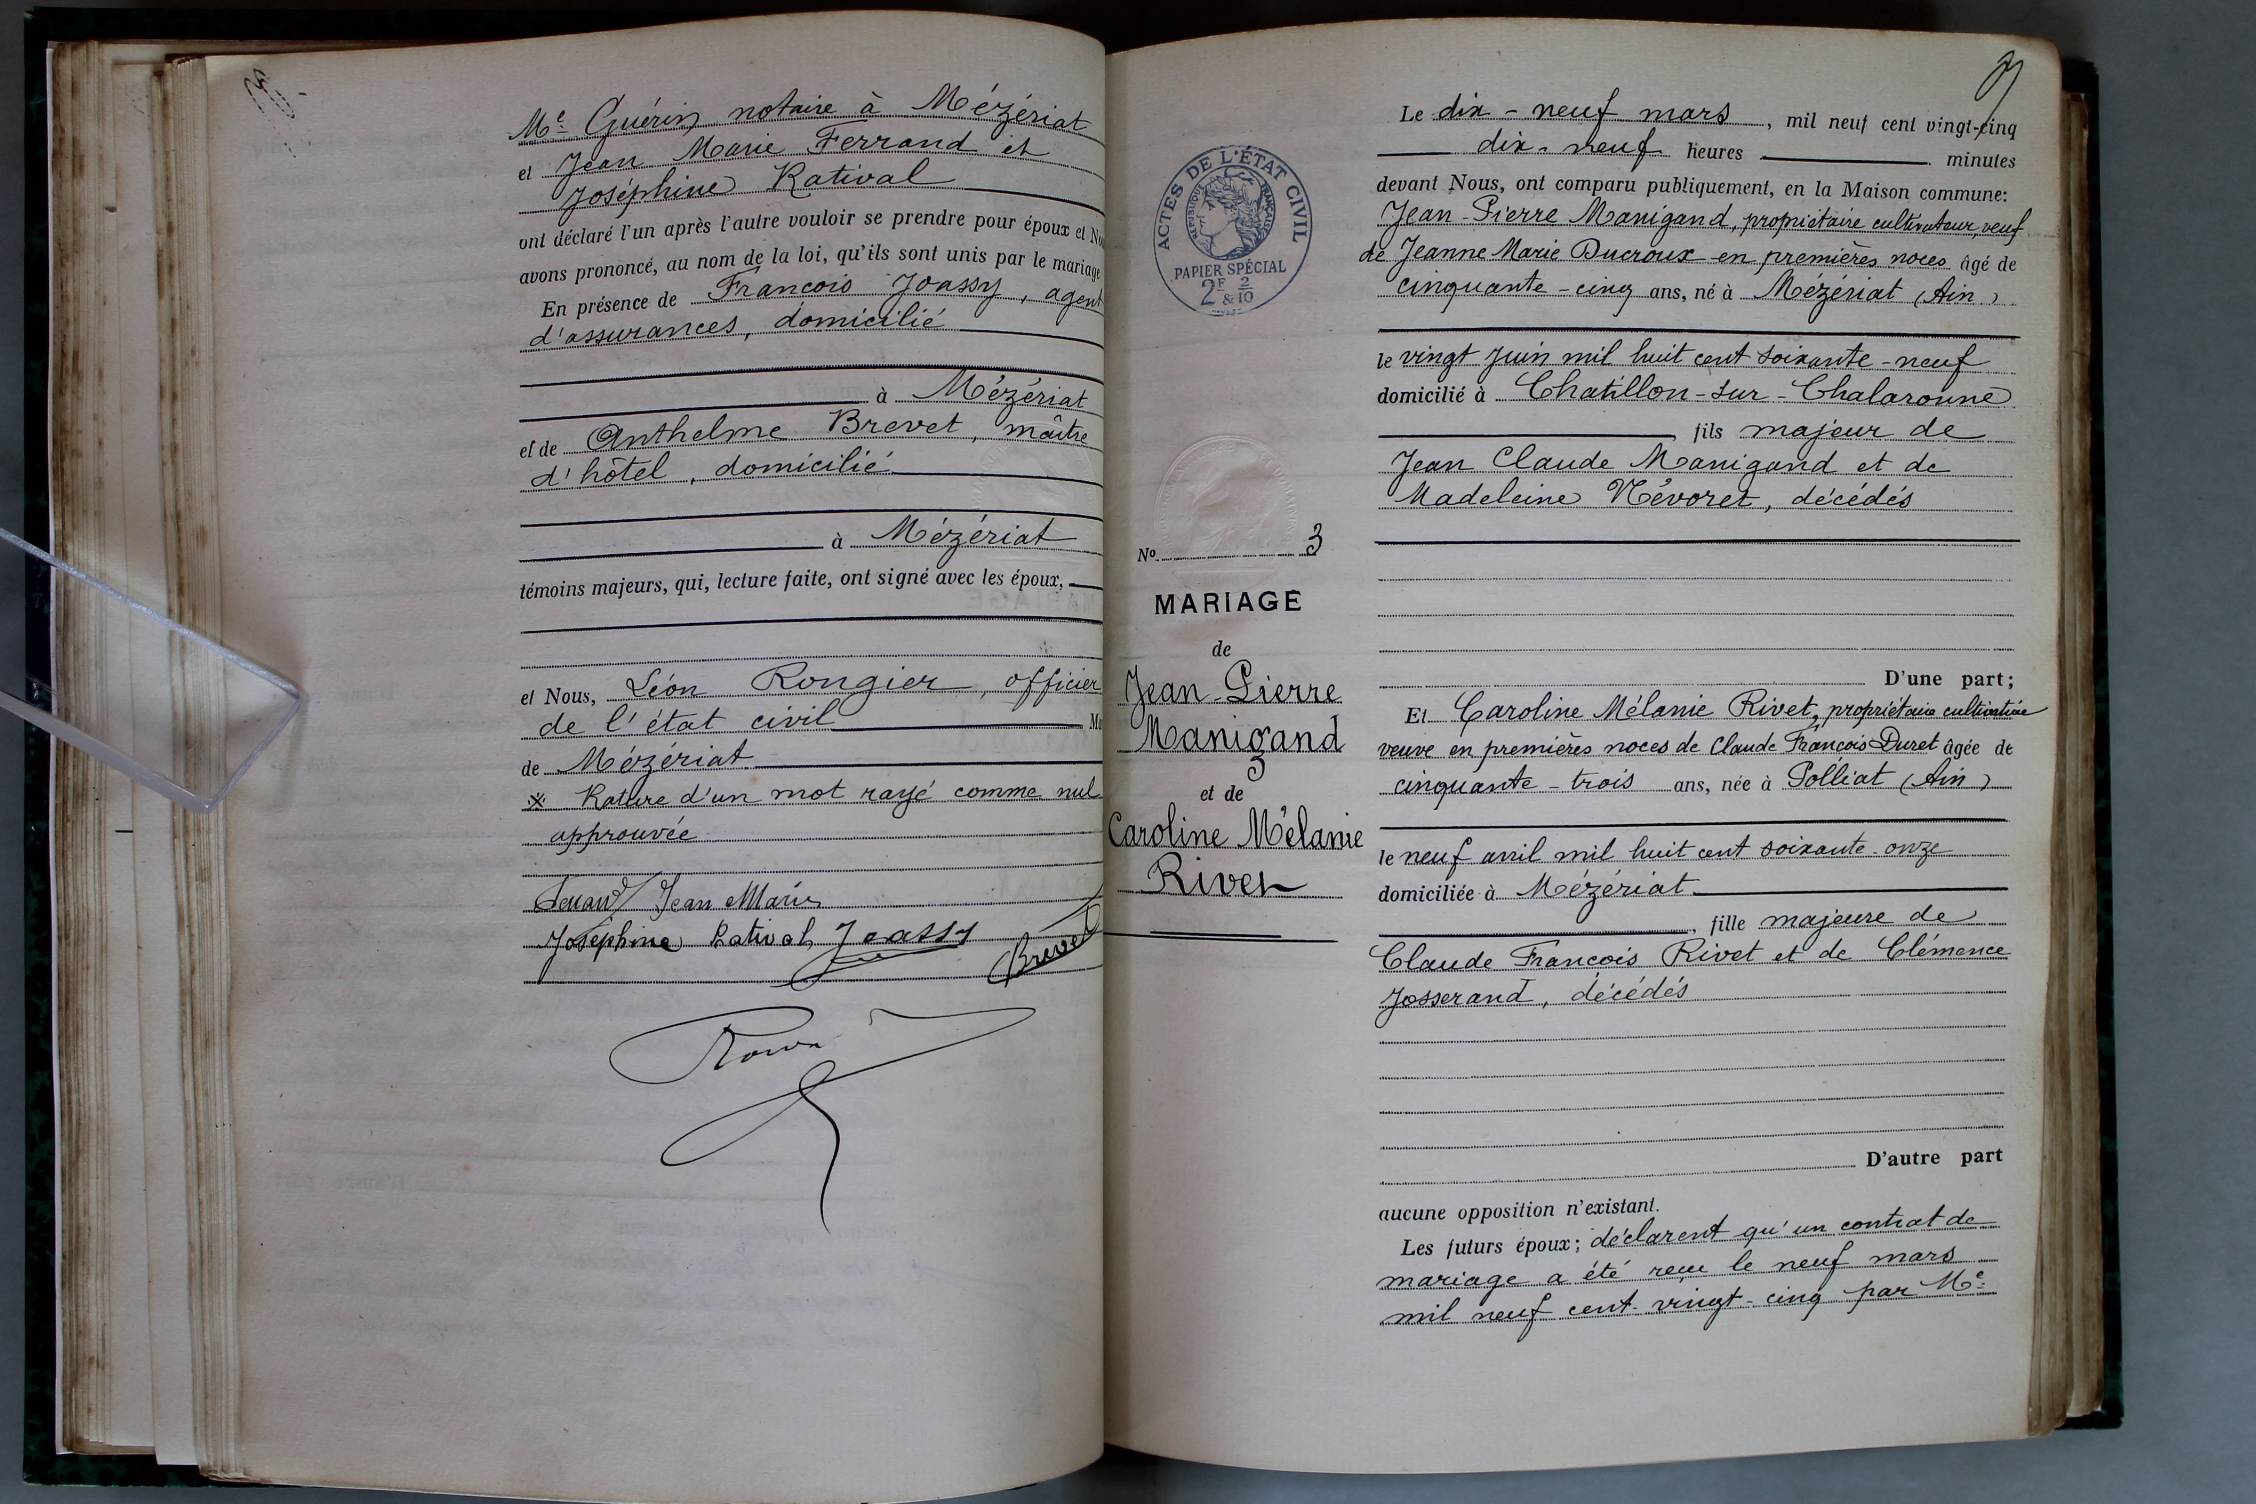 Me Guérin notaire à Mézériat
et Jean Marie Ferrand et
Joséphine Rativat
ont déclaré l'un après l'autre vouloir se prendre pour époux et No
avons prononcé, au nom de la loi, qu'ils sont unis par le mariage
En présence de François Joassy, agent
d'assurances, domicilié
à Mézériat
et de Anthelme Brevet, maître
d'hôtel, domicilié
à Mézériat
témoins majeurs, qui, lecture faite, ont signé avec les époux,
et Nous, Léon Rongier, officier
de l'état civil Ma
de Mézériat
Rature d'un mot rayé comme nul
approuvée
Jean Marie
Joséphine Rativat Joassy Brevet
ACTES DE L'ÉTAT CIVIL
RÉPUBLIQUE FRANÇAISE
PAPIER SPÉCIAL
2F & 2/10
No 3
MARIAGE
de
Jean-Pierre
Manigand
et de
Caroline Mélanie
Rivet
Le dix-neuf mars, mil neuf cent vingt-cinq
dix-neuf heures minutes
devant Nous, ont comparu publiquement, en la Maison commune:
Jean-Pierre Manigand, propriétaire cultivateur, veuf
de Jeanne Marie Ducroux en premières noces âgé de
cinquante-cinq ans, né à Mézériat (Ain)
le vingt juin mil huit cent soixante-neuf
domicilié à Chatillon-sur-Chalaronne
, fils majeur de
Jean Claude Manigand et de
Madeleine Névoret, décédés
D'une part;
Et Caroline Mélanie Rivet, propriétaire cultivatrice
veuve en premières noces de Claude François Duret âgée de
cinquante-trois ans, née à Polliat (Ain)
le neuf avril mil huit cent soixante-onze
domiciliée à Mézériat
, fille majeure de
Claude François Rivet et de Clémence
Josserand, décédés
D'autre part
aucune opposition n'existant.
Les futurs époux; déclarent qu'un contrat de
mariage a été reçu le neuf mars
mil neuf cent vingt-cinq par Me